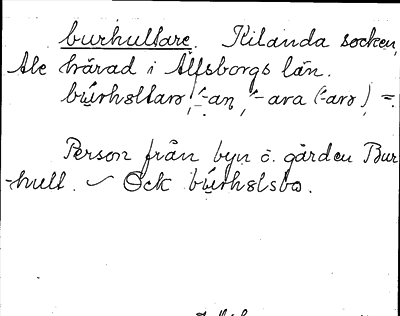 burhultare. Kilanda socken,
Ale härad i Älfsborgs län.
búrhɘltarɘ, -́-an, -́-ara (-́-arɘ) =
Person från byn o. gården Bur-
-hult. ~ Ock búrhɘlsbo.